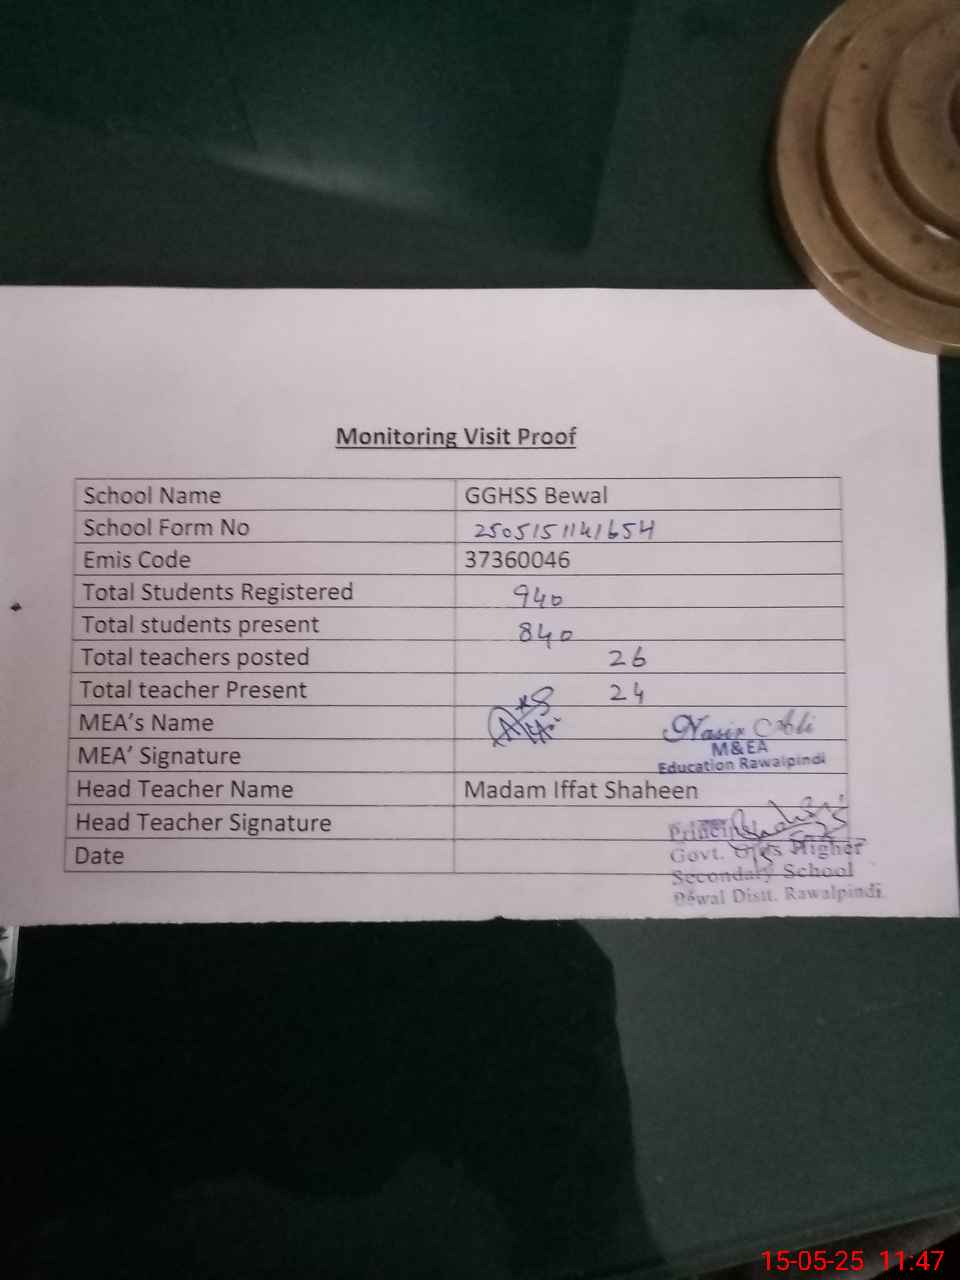 Monitoring Visit Proof
School Name GGHSS Bewal
School Form No 2505151141654
Emis Code 37360046
Total Students Registered 940
Total students present 840
Total teachers posted 26
Total teacher Present 24
MEA's Name Nasir Ali
M&EA
MEA' Signature
Education Rawalpindi
Head Teacher Name Madam Iffat Shaheen
Head Teacher Signature
Principal
Govt. Girls Higher
Date
Secondary School
Bewal Distt. Rawalpindi
15-05-25 11:47